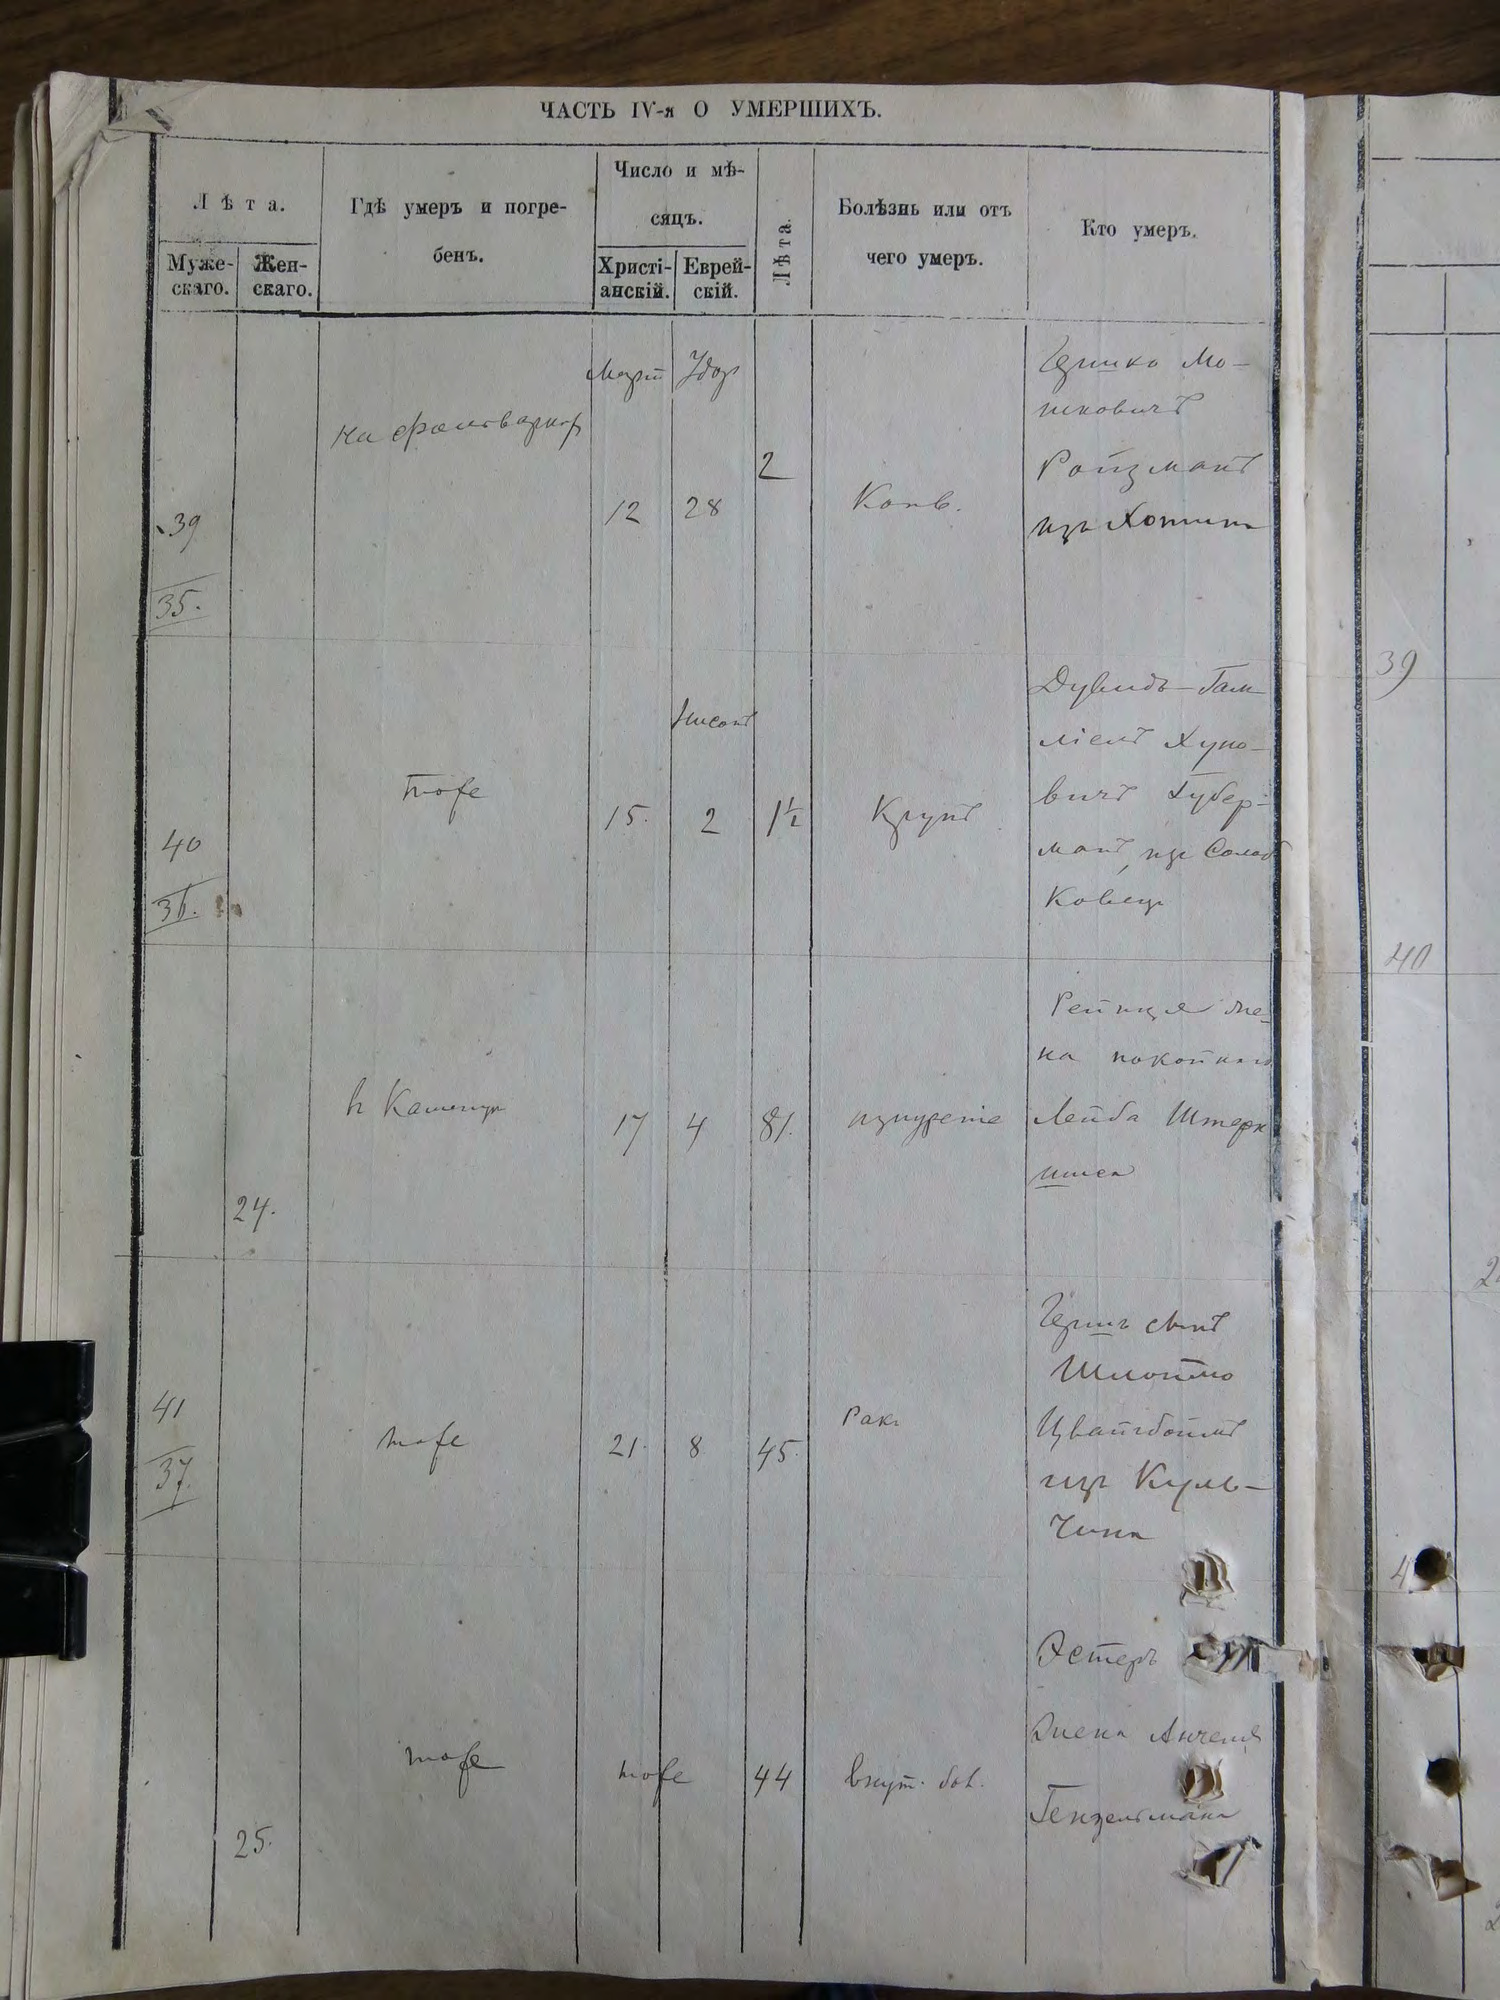 ЧАСТЬ IV-я О УМЕРШИХЪ.
Лѣта.
Муже-
скаго.
Жен-
скаго.
Гдѣ умеръ и погре-
бенъ.
Число и мѣ-
сяцъ.
Христі-
анскій.
Еврей-
скій.
Лѣта.
Болѣзнь или отъ
чего умеръ.
Кто умеръ.
39
35.
на фольварк
Март
12
28
2
Конв.
Гершко Мо-
шковичъ
Ройзманъ
изъ Хотина
40
36.
тоже
15.
Нисонъ
2
1½
Крупъ
Дувидъ-Гам-
ліелъ Хуно-
вичъ Губер-
манъ, изъ Солоб
ковец
24.
в Каменце
17
4
81.
изнуреніе
Рейпця же-
на покойнаго
Лейба Штерн
шиса
41
37.
тоже
21.
8
45.
Ракъ
Гершъ сынъ
Шлоймо
Цвайгбоймъ
изъ Куль-
чина
25.
тоже
тоже
44
внут. бол.
Эстеръ
жена Анчеля
Гензельмана
39
40
4